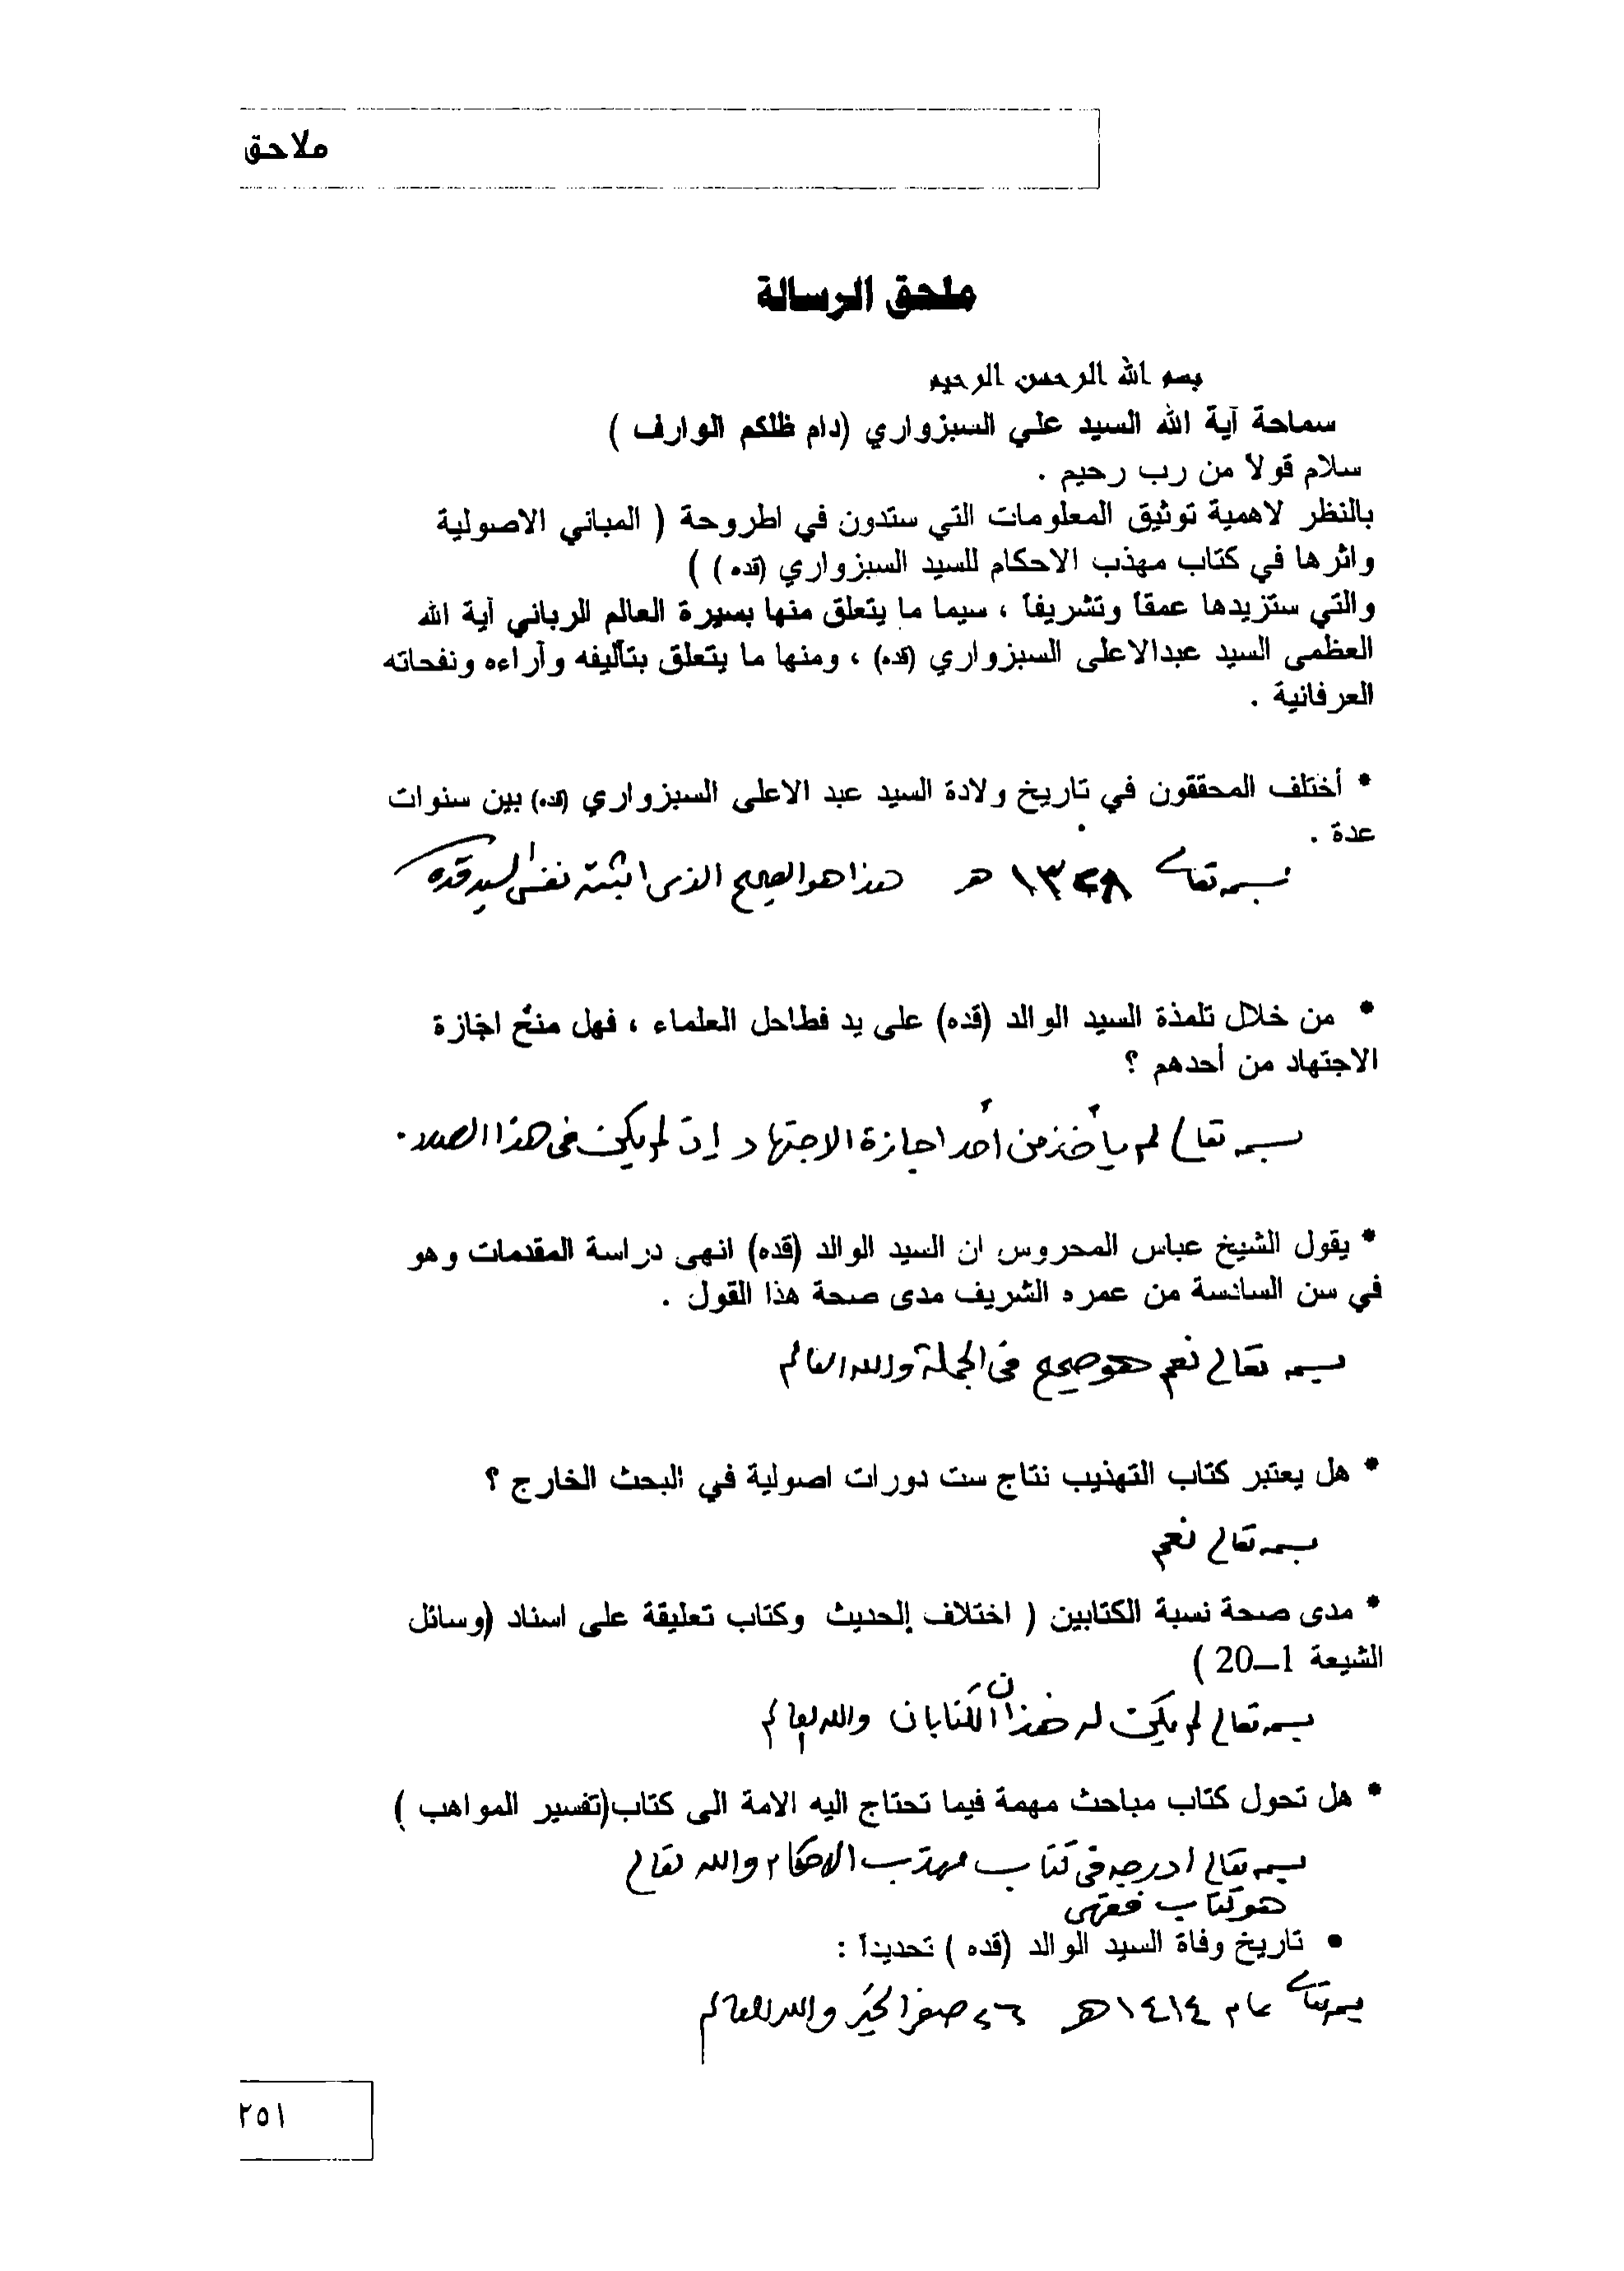 ملاحق
ملحق الرسالة
بسم الله الرحمن الرحيم
سماحة آية الله السيد علي السبزواري (دام ظلكم الوارف )
سلام قولا من رب رحيم .
بالنظر لاهمية توثيق المعلومات التي ستدون في اطروحة ( المباني الاصولية
واثرها في كتاب مهذب الاحكام للسيد السبزواري (قده) )
والتي ستزيدها عمقاً وتشريفاً ، سيما ما يتعلق منها بسيرة العالم الرباني آية الله
العظمى السيد عبدالاعلى السبزواري (قده) ، ومنها ما يتعلق بتآليفه وآراءه ونفحاته
العرفانية .
* أختلف المحققون في تاريخ ولادة السيد عبد الاعلى السبزواري (قده) بين سنوات
عدة .
بسمه تعالى ١٣٢٨ هـ هذا هو الصحيح الذي اثبته نفس السيد قده
* من خلال تلمذة السيد الوالد (قده) على يد فطاحل العلماء ، فهل منح اجازة
الاجتهاد من أحدهم ؟
بسمه تعالى لم يأخذ من أحد اجازة الاجتهاد لم يكن في هذا الصدد .
* يقول الشيخ عباس المحروس ان السيد الوالد (قده) انهى دراسة المقدمات وهو
في سن السادسة من عمره الشريف مدى صحة هذا القول .
بسمه تعالى نعم هو صحيح في الجملة والله العالم
* هل يعتبر كتاب التهذيب نتاج ست دورات اصولية في البحث الخارج ؟
بسمه تعالى نعم
* مدى صحة نسبة الكتابين ( اختلاف الحديث وكتاب تعليقة على اسناد (وسائل
الشيعة 1–20 )
بسمه تعالى لم يكن له هذان الكتابان والله العالم
* هل تحول كتاب مباحث مهمة فيما تحتاج اليه الامة الى كتاب(تفسير المواهب )
بسمه تعالى ادرجه في كتاب مهذب الاحكام والله تعالى
هو كتاب فقهي
• تاريخ وفاة السيد الوالد (قده ) تحديداً :
بسمه تعالى عام ١٤١٤ هـ ٢٦ صفر الخير والله العالم
٢٥١